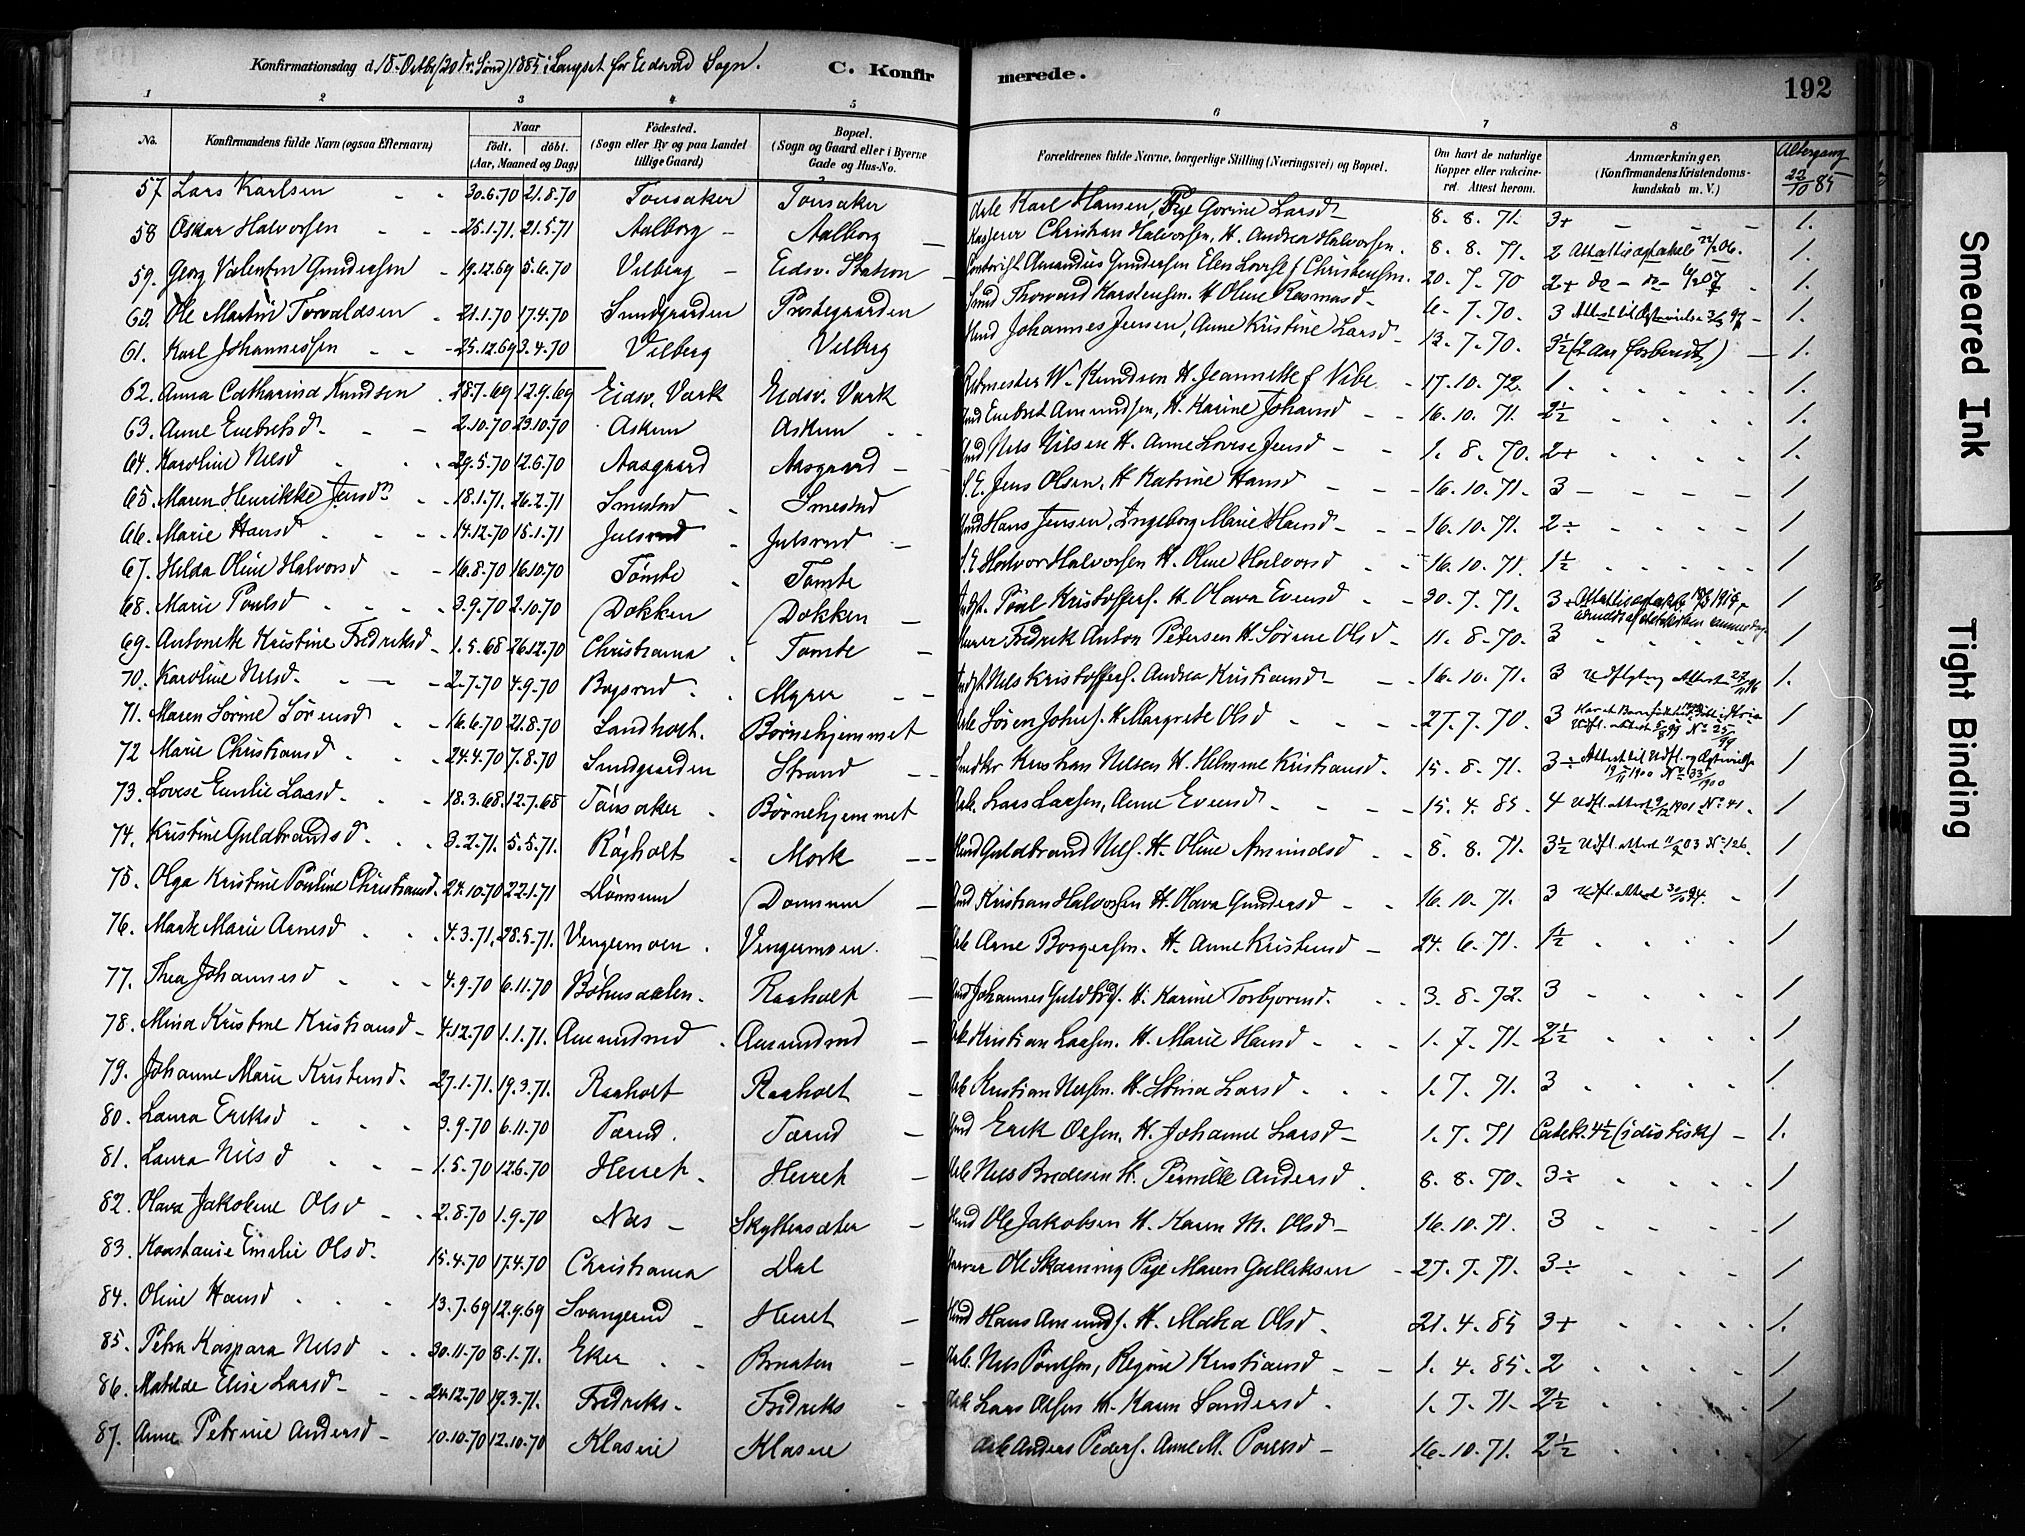 Konfirmationsdag d. 18 Octbr (20 S. e. Tr.) 1885 i Langset for Eidsvold Sogn. C. Konfirmerede. 192
1 2 3 4 5 6 7 8
No. Konfirmandens fulde Navn (ogsaa Efternavn) Naar født. døbt. (Aar, Maaned og Dag) Fødested. (Sogn eller By og paa Landet tillige Gaard) Bopæl. (Sogn og Gaard eller i Byerne Gade og Hus-No. Forældrenes fulde Navne, borgerlige Stilling (Næringsvei) og Bopæl. Om havt de naturlige Kopper eller vaccineret. Attest herom. Anmærkninger. (Konfirmandens Kristendomskundskab m. V.) Altergang 22/10 85
57. Lars Karlsen 30.6.70 21.8.70 Tonsaker Tonsaker Arb. Karl Hansen, Pige Gorine Larsd 8. 8. 71. 3+ 1.
58 Oskar Halvorsen 25.1.71. 21.5.71 Aalborg Aalborg Kasserer Christian Halvorsen, H. Andrea Halvorsen. 8. 8. 71. 2 1.
59. Georg Valentin Gundersen 19.12.69 5.6.70 Vilberg Eidsv. Station Amandus Gundersen Elen Lovise f Christensen. 20. 7. 70 2+ 1.
60. Ole Martin Torvaldsen 21.1.70 17.4.70 Sundgaarden Prestegaarden Smed Thorvard Karstensen. H Oline Rasmusd 6. 7. 70. 3 1.
61. Karl Johannessen 25.12.69 3.4.70 Vilberg Vilberg Hmd Johannes Jensen, Anne Kristine Larsd 13. 7. 70. 3½ (2 Aar forberedt) 1.
62. Anna Catharina Knudsen 28.7.69 12.9.69 Eidsv. Værk Eidsv. Værk W. Knudsen H. Jeannette f Vibe 17. 10. 72. 1. 1.
63. Anne Enebretsd 2.10.70 23.10.70 Askum Askum Hmd Enebret Amundsen, H. Karine Johansd 16. 10. 71. 2½ 1.
64. Karoline Nilsd 29.5.70 12.6.70 Aasgaard Aasgaard Hmd Nils Nilsen H. Anne Lovise Jensd 1. 8. 70. 2+ 1.
65. Maren Henrikke Jensd 18.1.71. 26.2.71 Smestad Smestad S.E. Jens Olsen. H Katrine Hansd 16. 10. 71. 3 1
66. Marie Hansd 14.12.70 15.1.71 Julsrud Julsrud Hmd Hans Jensen, Ingeborg Marie Hansd 16. 10. 71. 2÷ 1
67. Helda Oline Halvorsd 16.8.70 16.10.70 Tømte Tømte S.E. Halvor Halvorsen H. Oline Halvorsd 16. 10. 71. 1½ 1
68. Marie Poulsd 3.9.70 2.10.70 Dokken Dokken Indst. Poul Kristoffers. H. Olava Evensd 30. 7. 71. 3 1
69. Antonette Kristine Fredriksd 1.5.68 26.12.70 Christiania Tømte Murer Fredrik Anton Petersen H. Sørine Olsd 11. 8. 70. 3 1
70. Karoline Nilsd. 2.7.70 4.9.70 Bøgsrud Myrer Indst. Nils Kristoffers. Andrea Kristiansd 16. 10. 71. 3 Udflytng Attest 1.
71. Maren Sørine Sørensd 16.6.70 21.8.70 Landholt. Børnehjemmet Arb. Søren Johns. H. Margrete Olsd 27. 7. 70. 3 Udfl. Attest 5/8 99 No 25/99 1
72 Marie Christiansd 24.4.70 7.8.70 Sundgaarden Strand Kristian Nilsen H. Helmine Kristiansd. 15. 8. 71. 3÷ Attest til Udfl. 1900 No 33/1900 1
73. Lovise Emilie Larsd. 18.3.68 12.7.68 Tønsaker Børnehjemmet Arb. Lars Larsen, Anne Evensd 15. 4. 85. 4 Udfl. Attest 1901 No 41 1
74. Kristine Guldbrandsd. 3.2.71. 5.5.71. Røgholt Mork Hmd Guldbrand Nils. H. Oline Amundsd 8. 8. 71. 3½ Udfl. Attest 03 No 126. 1
75. Olga Kristine Pouline Christiansd. 24.10.70 22.1.71 Dønnum Dønnum Hmd Kristian Halvorsen H. Olava Gundersd 16. 10. 71. 3 Udfl. Attest 94. 1
76. Marte Marie Arnesd 4.3.71. 28.5.71. Vengermoen Vengermoen. Arb Arne Borgersen. H. Anne Kristensd 24. 6. 71. 1½ 1
77. Thea Johannesd 4.9.70 6.11.70 Bøhnsdalen. Raaholt Hmd Johannes Guldbrds. H. Karine Torbjørnsd. 3. 8. 72. 3 1
78. Mina Kristine Kristiansd 4.12.70 1.1.71. Amundrud Amundrud Arb Kristian Larsen. H. Marie Hansd 1. 7. 71. 2½ 1
79. Johanne Marie Kristensd. 27.1.71. 19.3.71. Raaholt Raaholt Arb Kristian Nilsen. H. Stina Larsd 1. 7. 71. 3 1.
80. Laura Eriksd 3.9.70 6.11.70 Tærud. Tærud Hmd Erik Olsen. H. Johanne Larsd 1. 7. 71 Catek. 4½ (idiotisk) 1.
81. Laura Nilsd 1.5.70 12.6.70 Herret. Herret Arb Nils Bredesen H. Pernille Andersd 8. 8. 70. 3÷ 1
82. Olava Jakobine Olsd 2.8.70 1.9.70 Næs Skyttersæter Hmd Ole Jakobsen H. Karen M. Olsd 16. 10. 71. 3 1
83. Konstanse Emilie Olsd. 15.4.70 17.4.70 Christiania Dal Ole Skarning Pige Maren Gulliksen 27. 7. 71. 3÷ 1
84. Oline Hansd 13.7.69 12.9.69 Svangerud Herret Hmd Hans Amunds. H. Maka Olsd. 21. 4. 85 3+ 1.
85. Petra Kaspara Nilsd 30.11.70 8.1.71. Eker Braaten Arb. Nils Poulsen, Regine Kristiansd 1. 4. 85. 2 1
86. Matilde Elise Larsd 24.12.70 19.3.71. Fredriks. Fredriks Arb Lars Olsen H. Karen Sandersd. 1. 7. 71. 2½ 1
87. Anne Petrine Andersd 10.10.70 12.10.70 Klasere Klasere Arb Anders Peders. Anne M. Poulsd 16. 10. 71. 2½ 1
Smeared Ink
Tight Binding